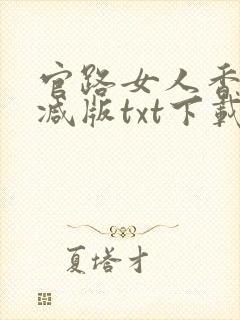 官路女人香
减版txt下载
夏塔才